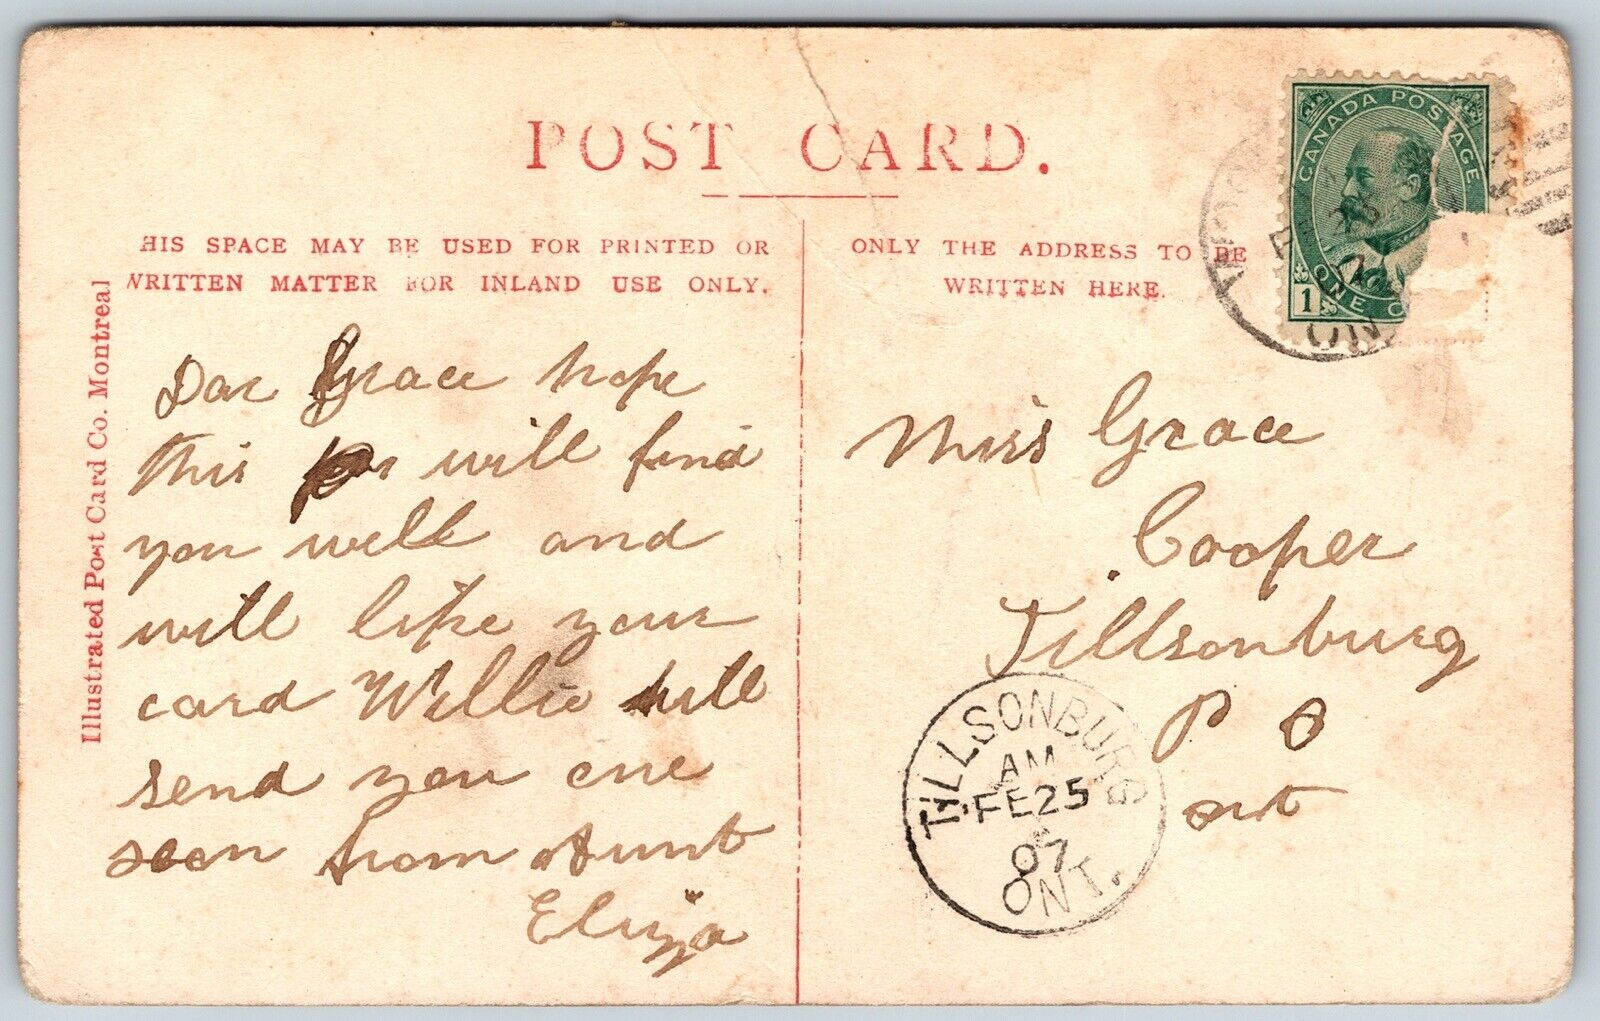 POST CARD.
HIS SPACE MAY BE USED FOR PRINTED OR
WRITTEN MATTER FOR INLAND USE ONLY.
ONLY THE ADDRESS TO BE
WRITTEN HERE.
Illustrated Post Card Co. Montreal
CANADA POSTAGE
1
ONE
ONT
07
Dar Grace hope
this will find
you well and
will like your
card Willie will
send you one
soon from Aunt
Eliza
Miss Grace
Cooper
Tillsonburg
P O
ont
TILLSONBURG
AM
FE 25
07
ONT.